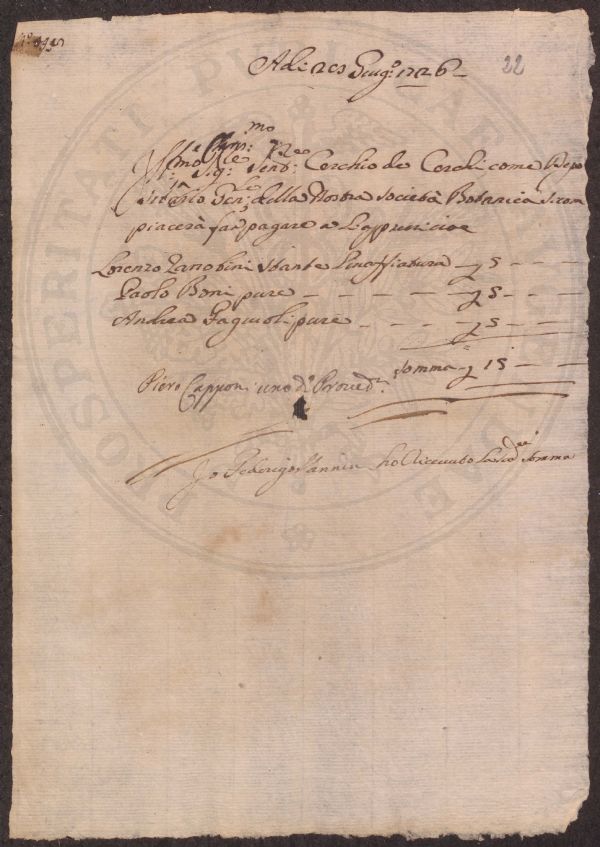 22
Adi 29 Giug.º 1726
Ill.mo Sig.re Cerchio de Cerchi come Depo
sitario Gen.le della Nostra Società Botanica si com
piacerà far pagare a L'appunioe
Lorenzo Zanobini Stante Linaffiatura — 5 — —
Paolo Boni pure — — — — 5 — —
Andrea Fagiuoli pure — — — — 5 — —
Somma 15 — —
Piero Capponi uno d. Proved.
Io Federigo Nannini ho Ricevuto la sud.a Somma
PROSPERITATI PUBLICAE AUGENDAE